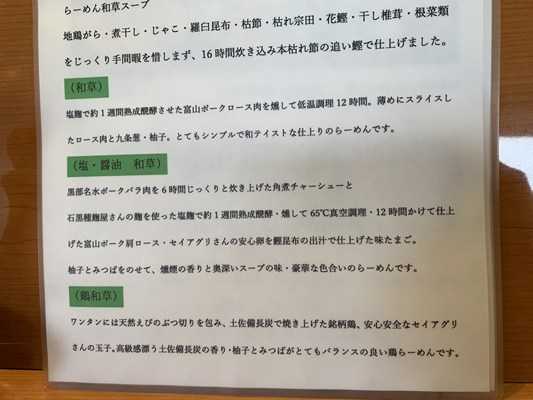 らーめん和草スープ
地鶏がら・煮干し・じゃこ・羅臼昆布・枯節・枯れ宗田・花鰹・干し椎茸・根菜類
をじっくり手間暇を惜しまず、16時間炊き込み本枯れ節の追い鰹で仕上げました。
（和草）
塩麹で約1週間熟成醗酵させた富山ポークロース肉を燻して低温調理12時間。薄めにスライスし
たロース肉と九条葱・柚子。とてもシンプルで和テイストな仕上りのらーめんです。
（塩・醤油　和草）
黒部名水ポークバラ肉を6時間じっくりと炊き上げた角煮チャーシューと
石黒種麹屋さんの麹を使った塩麹で約1週間熟成醗酵・燻して65℃真空調理・12時間かけて仕上
げた富山ポーク肩ロース・セイアグリさんの安心卵を鰹昆布の出汁で仕上げた味たまご。
柚子とみつばをのせて、燻煙の香りと奥深いスープの味・豪華な色合いのらーめんです。
（鶏和草）
ワンタンには天然えびのぶつ切りを包み、土佐備長炭で焼き上げた銘柄鶏、安心安全なセイアグリ
さんの玉子。高級感漂う土佐備長炭の香り・柚子とみつばがとてもバランスの良い鶏らーめんです。